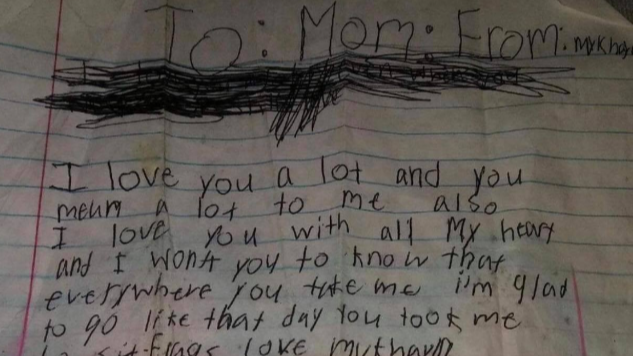 To: Mom. From:
I love you a lot and you
mean a lot to me also
I love you with all My heart
and I wont you to know that
everywhere you take me i'm glad
to go like that day You took me
love